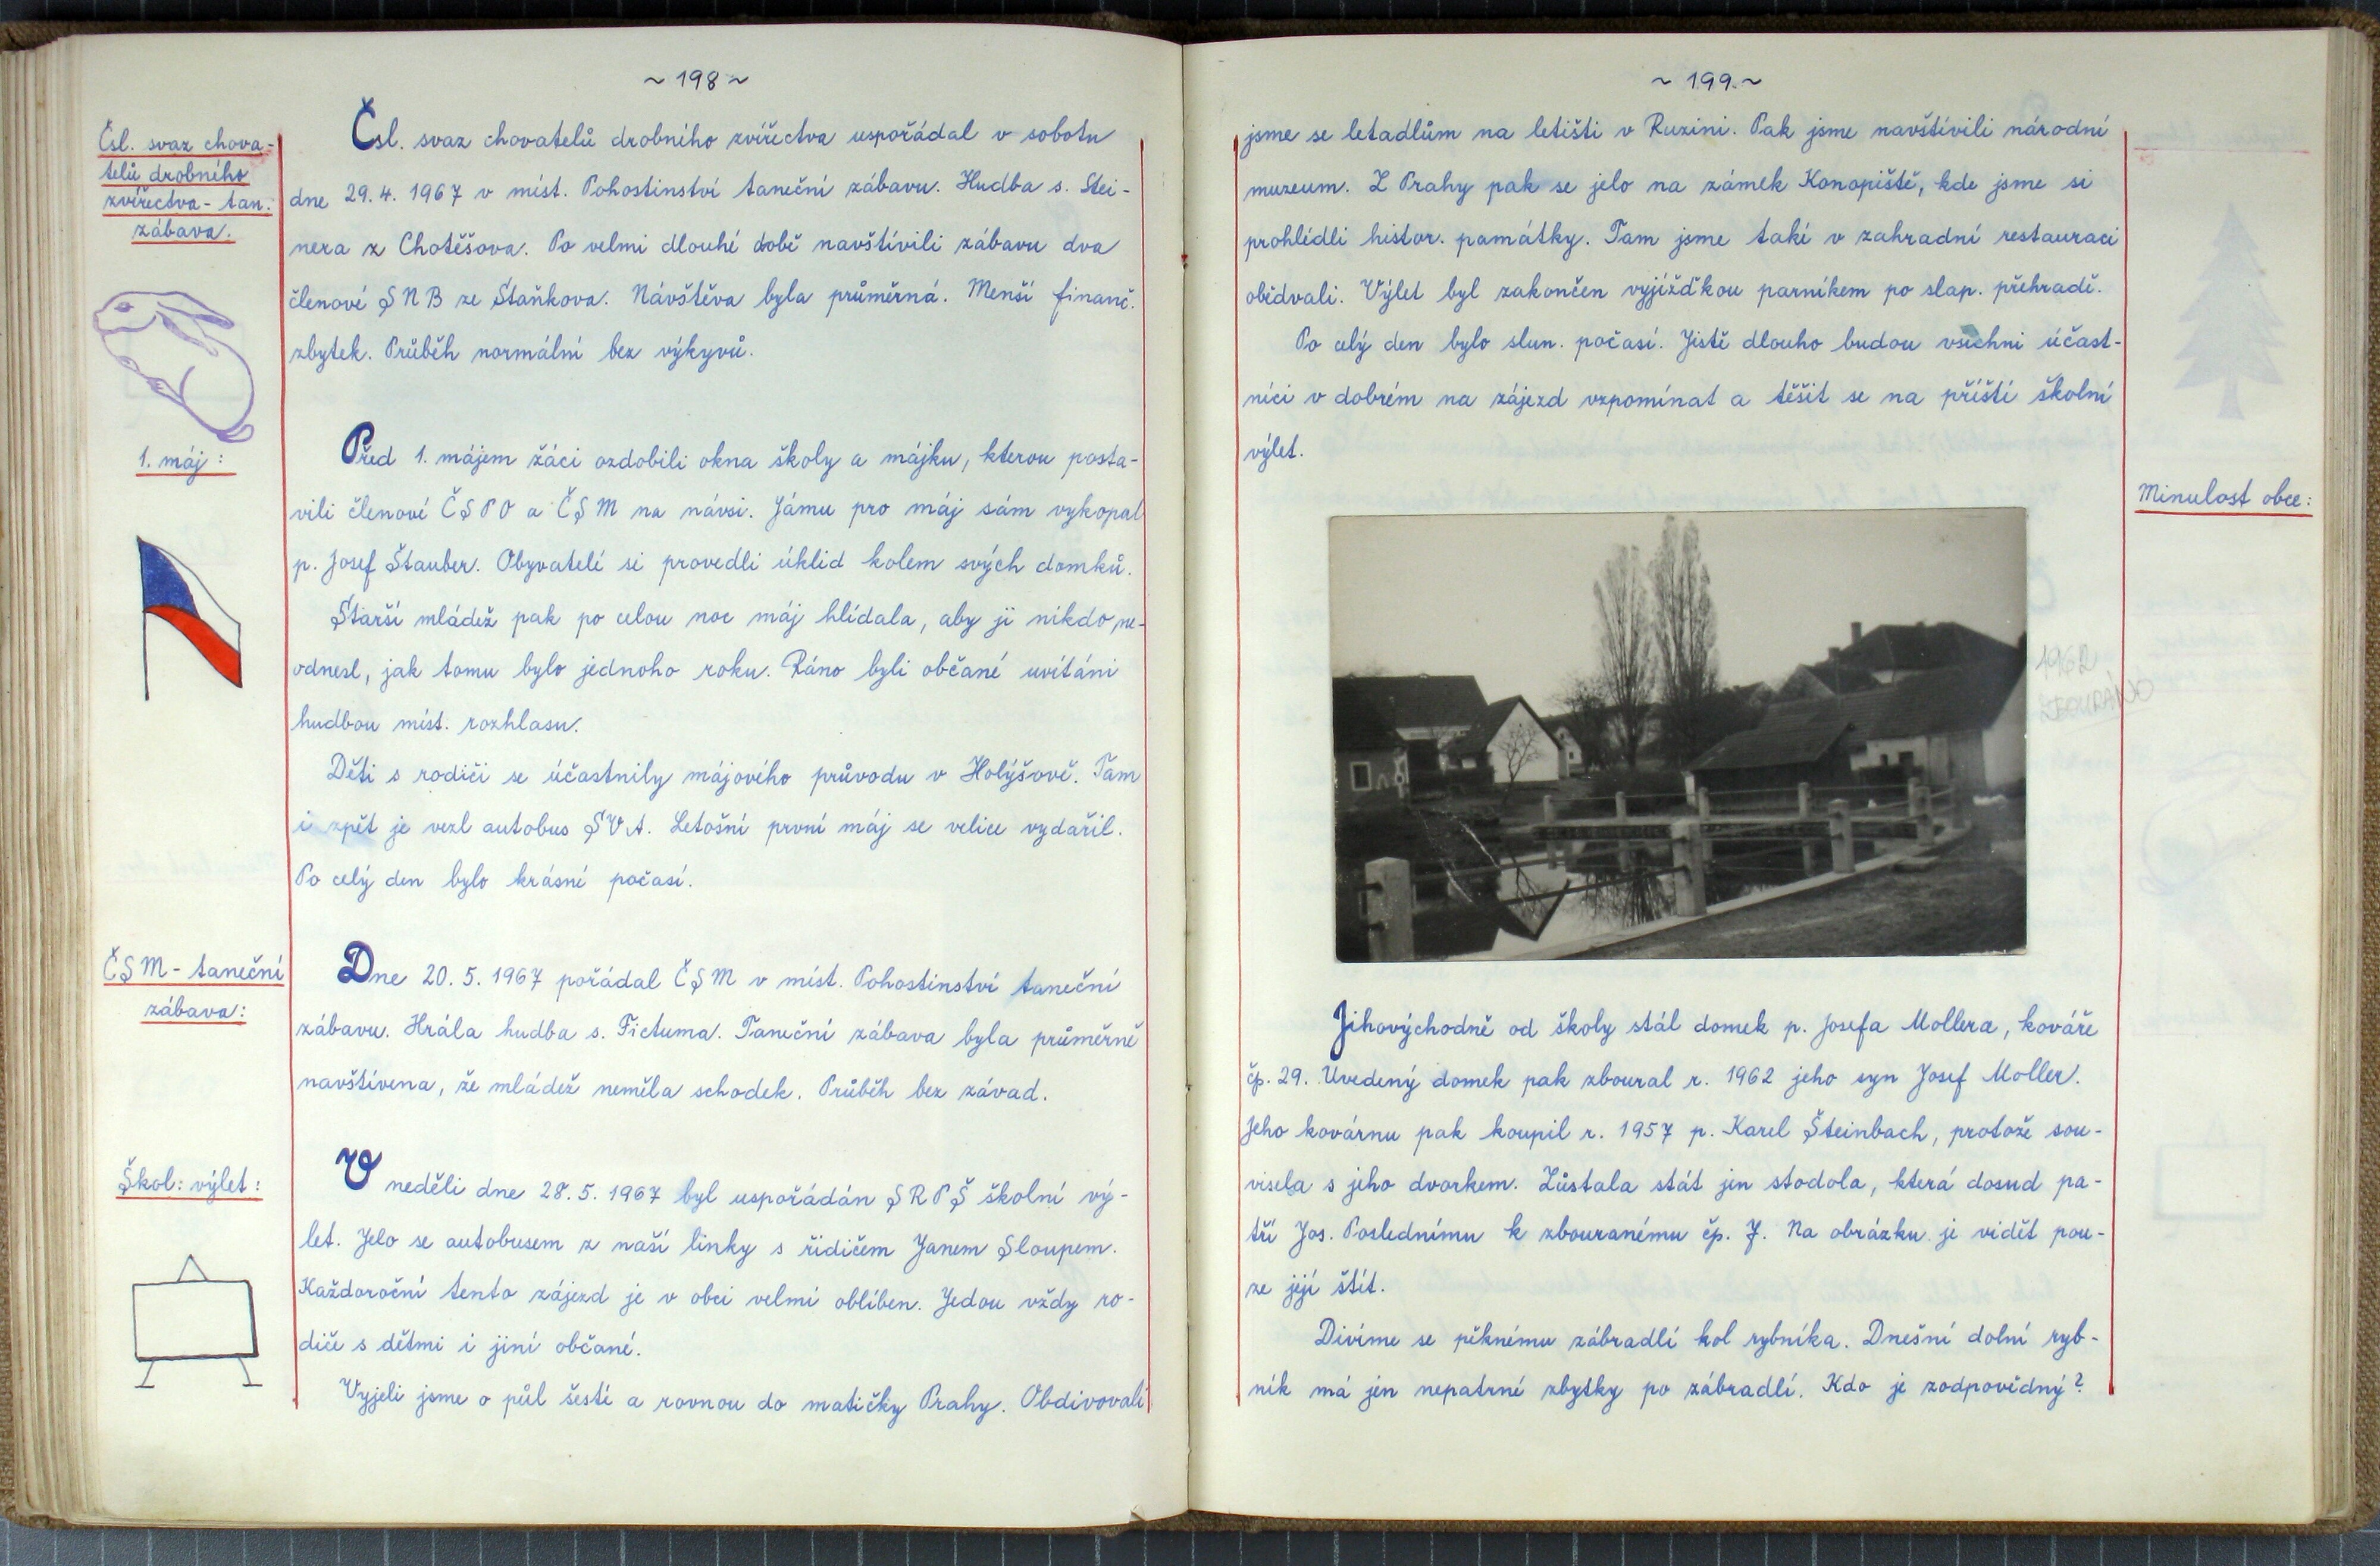 ~ 198 ~
Čsl. svaz chova-
telů drobného
zvířectva - tan.
zábava.
Čsl. svaz chovatelů drobného zvířectva uspořádal v sobotu
dne 29. 4. 1967 v míst. Pohostinství taneční zábavu. Hudba s. Stei-
nera z Chotěšova. Po velmi dlouhé době navštívili zábavu dva
členové SNB ze Staňkova. Návštěva byla průměrná. Menší finanč.
zbytek. Průběh normální bez výkyvů.
1. máj:
Před 1. májem žáci ozdobili okna školy a májku, kterou posta-
vili členové ČSPO a ČSM na návsi. Jámu pro máj sám vykopal
p. Josef Štauber. Obyvatelé si provedli úklid kolem svých domků.
Starší mládež pak po celou noc máj hlídala, aby ji nikdo ne-
odnesl, jak tomu bylo jednoho roku. Ráno byli občané uvítáni
hudbou míst. rozhlasu.
Děti s rodiči se účastnily májového průvodu v Holýšově. Tam
i zpět je vezl autobus SVA. Letošní první máj se velice vydařil.
Po celý den bylo krásné počasí.
ČSM - taneční
zábava:
Dne 20. 5. 1967 pořádal ČSM v míst. Pohostinství taneční
zábavu. Hrála hudba s. Fictuma. Taneční zábava byla průměrně
navštívena, že mládež neměla schodek. Průběh bez závad.
Škol: výlet:
V neděli dne 28. 5. 1967 byl uspořádán SRPŠ školní vý-
let. Jelo se autobusem z naší linky s řidičem Janem Sloupem.
Každoroční tento zájezd je v obci velmi oblíben. Jedou vždy ro-
diče s dětmi i jiní občané.
Vyjeli jsme o půl šesté a rovnou do matičky Prahy. Obdivovali
~ 199 ~
jsme se letadlům na letišti v Ruzini. Pak jsme navštívili národní
muzeum. Z Prahy pak se jelo na zámek Konopiště, kde jsme si
prohlédli histor. památky. Tam jsme také v zahradní restauraci
obědvali. Výlet byl zakončen vyjížďkou parníkem po slap. přehradě.
Po celý den bylo slun. počasí. Jistě dlouho budou všichni účast-
níci v dobrém na zájezd vzpomínat a těšit se na příští školní
výlet.
Minulost obce:
1962
ZBOURÁNO
Jihovýchodně od školy stál domek p. Josefa Mollera, kováře
čp. 29. Uvedený domek pak zboural r. 1962 jeho syn Josef Moller.
Jeho kovárnu pak koupil r. 1957 p. Karel Šteinbach, protože sou-
visela s jeho dvorkem. Zůstala stát jen stodola, která dosud pa-
tří Jos. Poslednímu k zbouranému čp. 7. Na obrázku je vidět pou-
ze její štít.
Divíme se pěknému zábradlí kol rybníka. Dnešní dolní ryb-
ník má jen nepatrné zbytky po zábradlí. Kdo je zodpovědný?